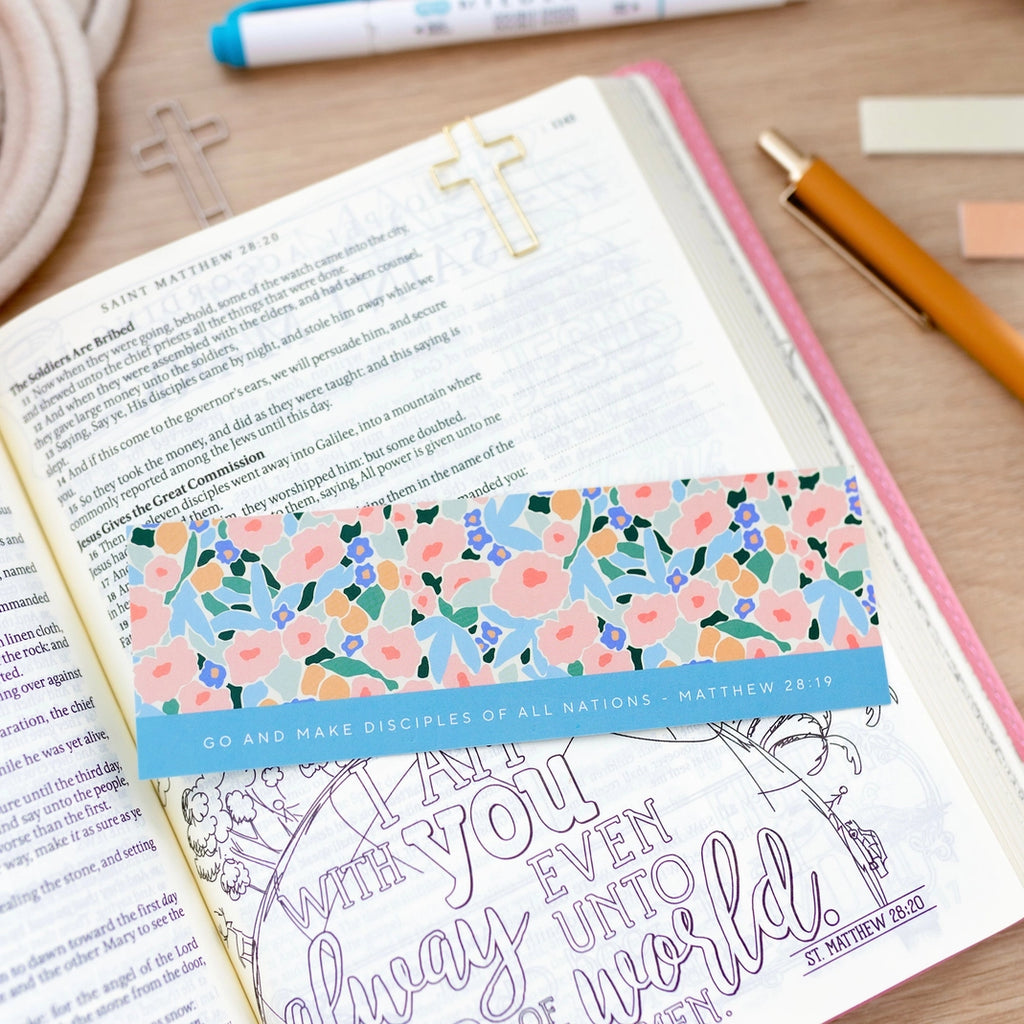 SAINT MATTHEW 28:20
The Soldiers Are Bribed
11 Now when they were going, behold, some of the watch came into the city,
and shewed unto the chief priests all the things that were done.
12 And when they were assembled with the elders, and had taken counsel,
they gave large money unto the soldiers,
13 Saying, Say ye, His disciples came by night, and stole him away while we
slept.
14 And if this come to the governor's ears, we will persuade him, and secure
you.
15 So they took the money, and did as they were taught: and this saying is
commonly reported among the Jews until this day.
Jesus Gives the Great Commission
16 Then eleven disciples went away into Galilee, into a mountain where
Jesus had them.
17 And him, they worshipped him: but some doubted.
18 And to them, saying, All power is given unto me
in he
19 them in the name of the
Fa manded you:
GO AND MAKE DISCIPLES OF ALL NATIONS - MATTHEW 28:19
I AM
WITH you
alway EVEN
UNTO
world.
OF
MEN.
ST. MATTHEW 28:20
s and
named
mmanded
n linen cloth,
the rock: and
ted.
ing over against
aration, the chief
hile he was yet alive,
ure until the third day,
and say unto the people,
worse than the first.
way, make it as sure as ye
ealing the stone, and setting
n to dawn toward the first day
and the other Mary to see the
ke: for the angel of the Lord
the stone from the door,
snow: